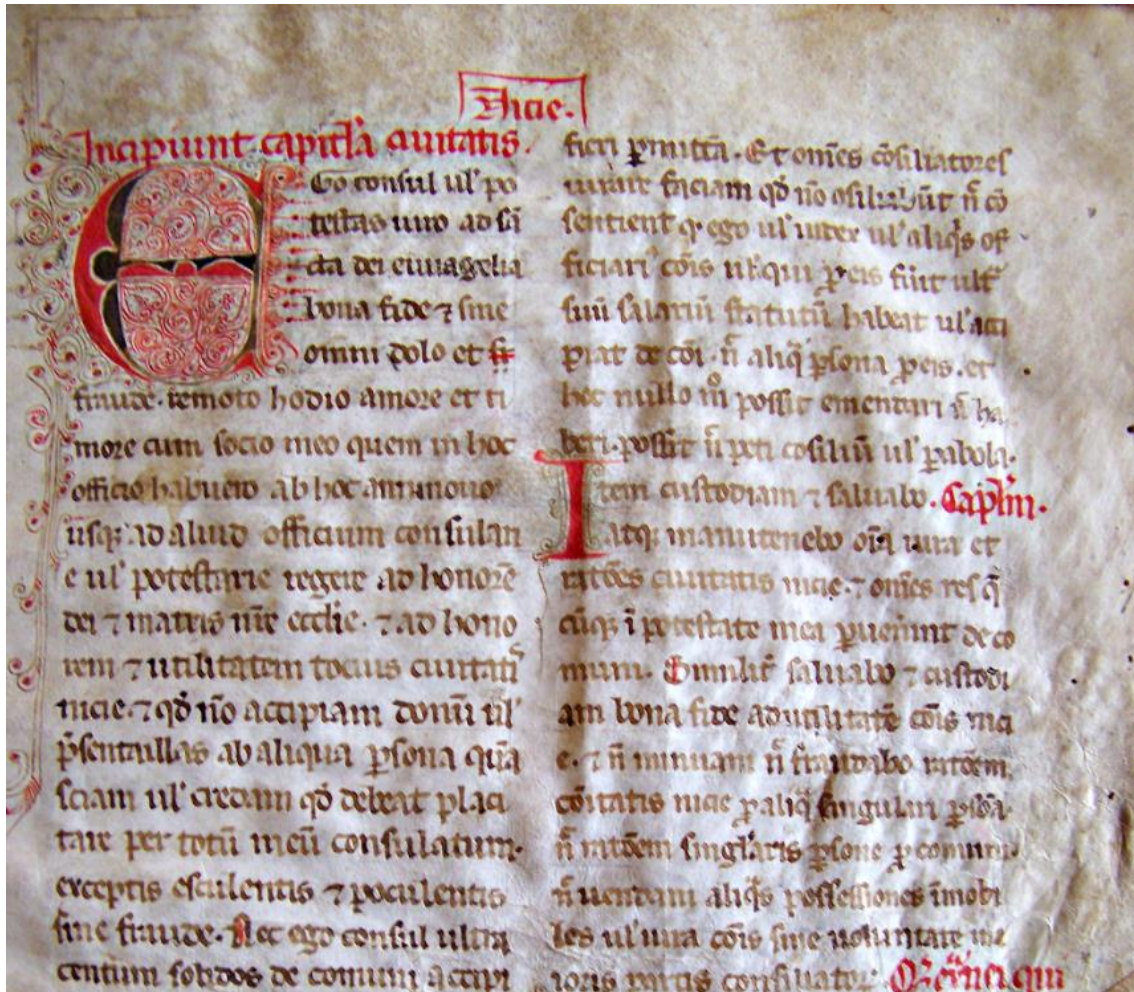 Nicie.
Incipiunt capitl'a ciuitatis.
EGo consul ul' po
testas iuro ad sc̃
cta dei euuãgelia
bona fide ⁊ sine
omni dolo et
fraude. remoto hodio amore et ti
more cum socio meo quem in hoc
officio habuero ab hoc anno nouo
usq; ad aliud officium consulari
e ul' potestarie regere ad honorẽ
dei ⁊ matris nr̃e ecclie. ⁊ ad hono
rem ⁊ utilitatem tocius ciuitatis
nicie. ⁊ qđ nõ accipiam donũ ul'
p̃sentaullas ab aliqua ꝑsona quã
sciam ul' credam qđ debeat placi
tare per totũ meũ consulatum.
exceptis esculentis ⁊ poculentis
sine fraude. Nec ego consul ultra
centum solidos de comuni accipi
fieri ꝑmittã. Et om̃es cõsiliatores
iurare faciam qđ nõ ñ cõ
sentient ꝙ ego ul' iudex ul' aliq̃s of
ficiari' cõis ul' qui ꝓ eis ult̃
suũ salariũ statutũ habeat ul' acci
piat de cõi. ñ aliq̃ ꝑsona ꝓ eis. et
hoc nullo mº possit emendari ñ ha
beri. possit ñ peti cosiliũ ul' ꝑabola.
Item custodiam ⁊ saluabo. Capl'm.
atq; manutenebo oĩa iura et
ratões ciuitatis nicie. ⁊ om̃es res q̃
cũq; ĩ potestate mea ꝑuenerint de co
muni. Similit̃ saluabo ⁊ custodi
am bona fide ad utilitatẽ cõis nici
e. ⁊ ñ minuam ñ fraudabo ratõem
cõitatis nicie ꝓ aliq̃ singulari ꝑsõa.
ñ ratõem singl'aris ꝑsone ꝓ comuni.
ñ uendam aliq̃s possessiones ĩmobi
les ul' iura cõis sine uoluntate ma
ioris partis consiliator.